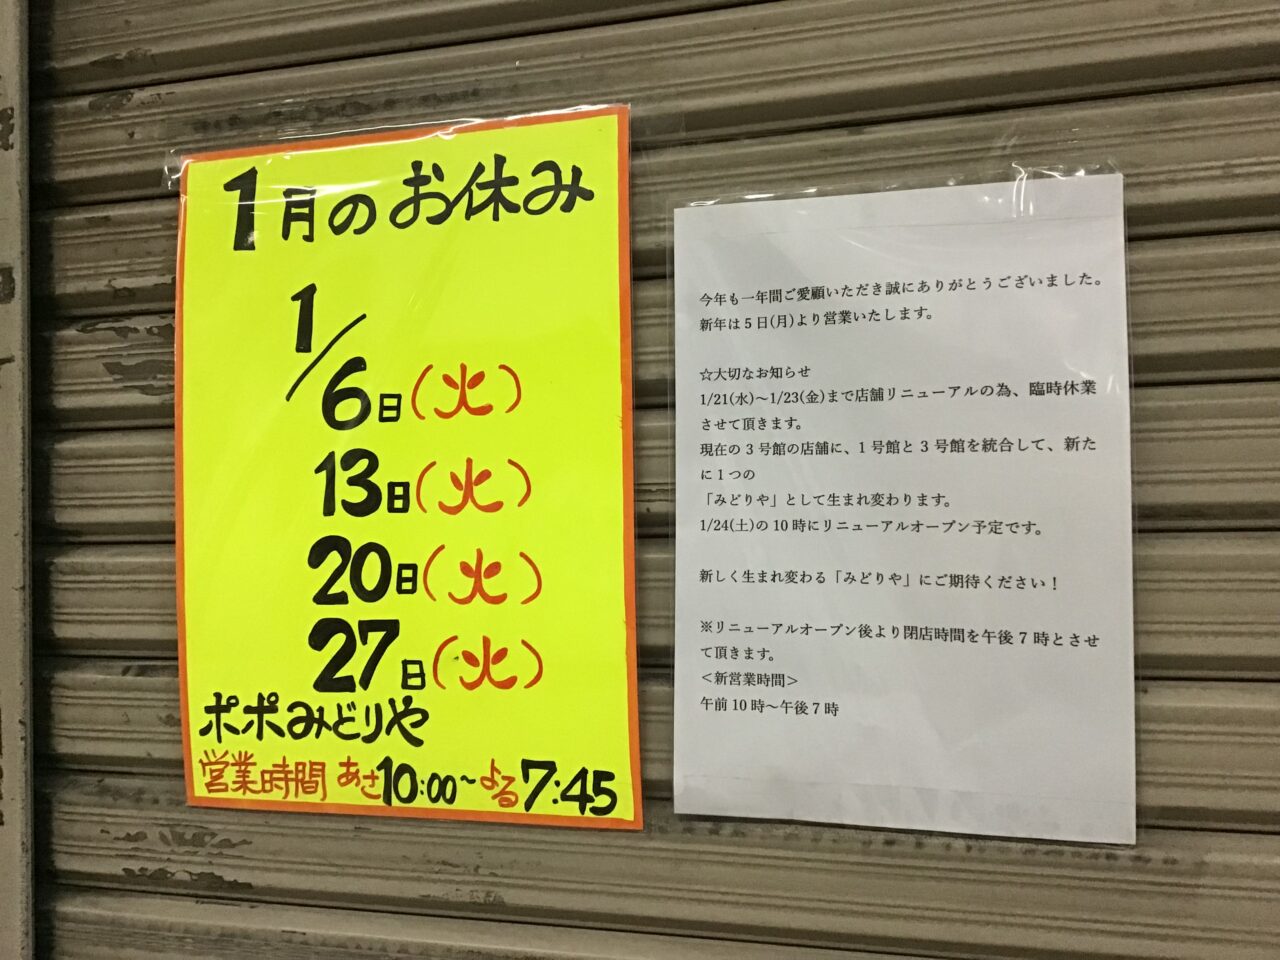 1月のお休み
1/6日(火)
13日(火)
20日(火)
27日(火)
ポポみどりや
営業時間 あさ10:00~よる7:45
今年も一年間ご愛顧いただき誠にありがとうございました。
新年は5日(月)より営業いたします。
☆大切なお知らせ
1/21(水)～1/23(金)まで店舗リニューアルの為、臨時休業
させて頂きます。
現在の3号館の店舗に、1号館と3号館を統合して、新た
に1つの
「みどりや」として生まれ変わります。
1/24(土)の10時にリニューアルオープン予定です。
新しく生まれ変わる「みどりや」にご期待ください！
※リニューアルオープン後より閉店時間を午後7時とさせ
て頂きます。
＜新営業時間＞
午前10時～午後7時